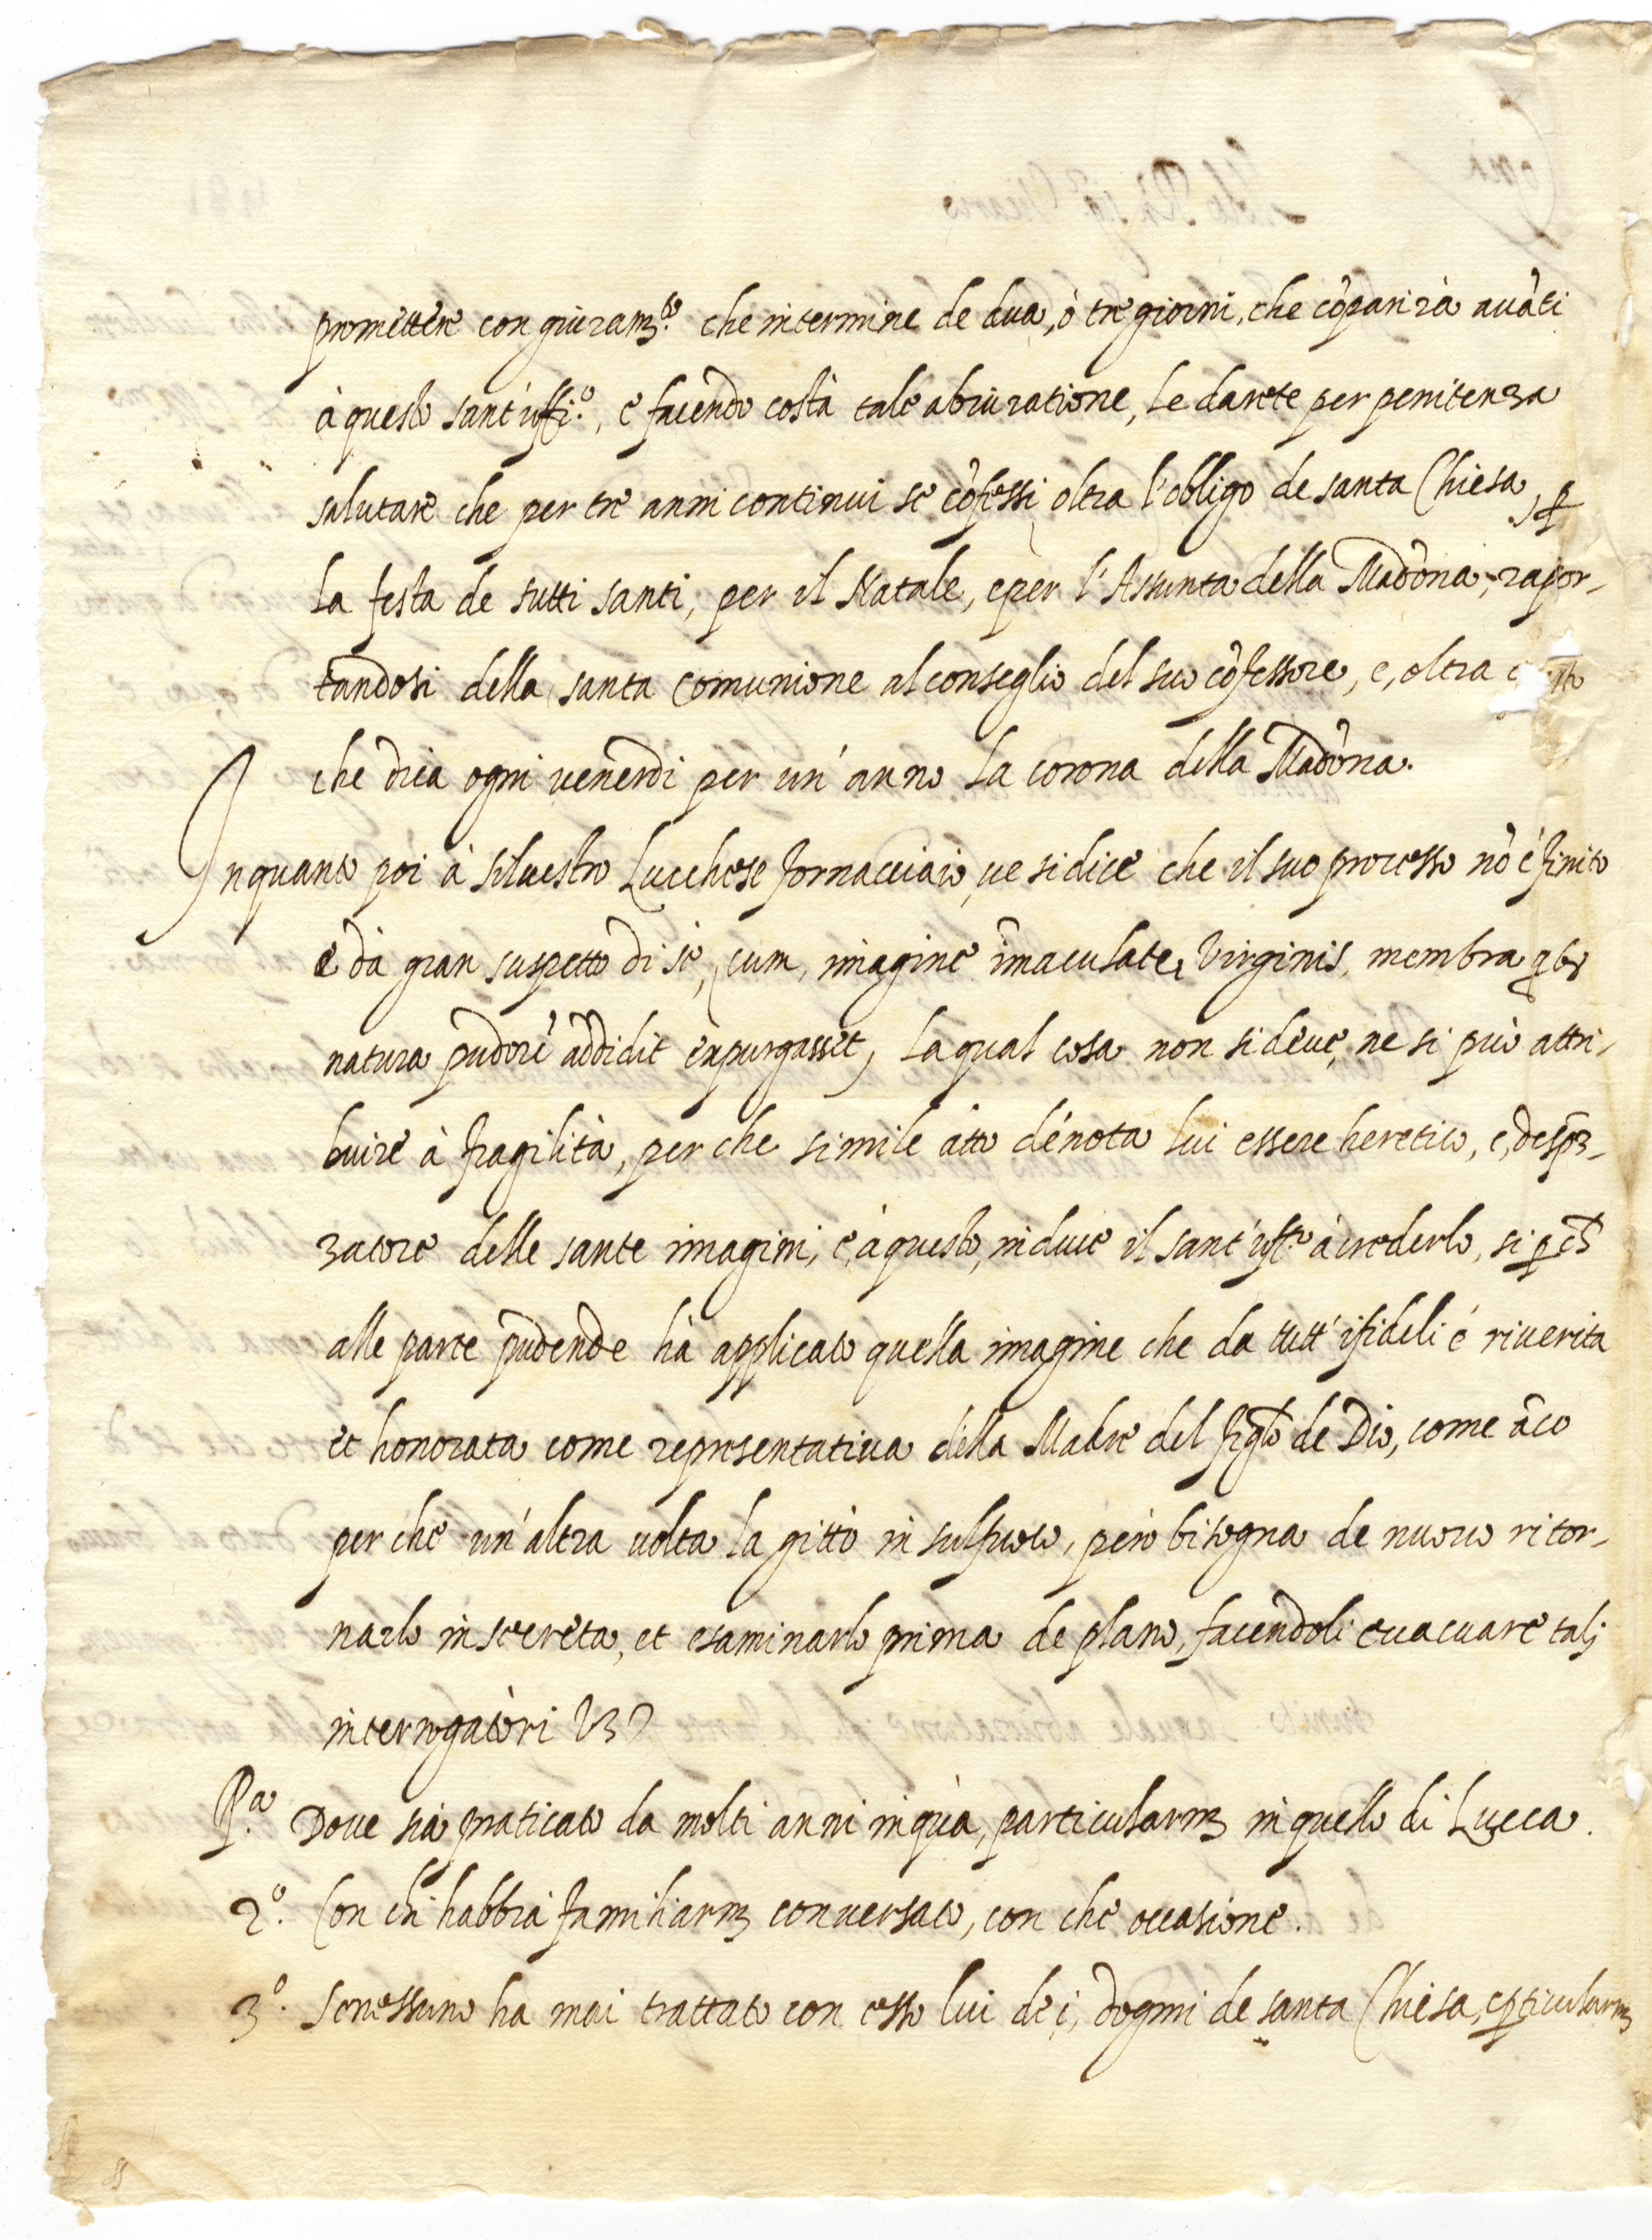 promettere con giuram.to che in termine de dua, ò tre giorni, che cõparirà auãti
à questo sant'uffi.o, e facendo costà tale abiuratione, le darete per penitenza
salutare che per tre anni continui se cõfessi oltra l'obligo de santa Chiesa, p
la festa de tutti santi, per il Natale, e per l'Assunta della Madõna, rapor-
tandosi della santa Comunione al conseglio del suo cõfessore, e, oltra
che dica ogni uenerdi per un'anno la corona della Madõna.
Inquanto poi à Siluestro Lucchese fornacciaio, ue si dice che il suo processo nõ è finito
e dà gran suspetto di sè, cum, imagine im̃aculate Virginis, membra qbs
natura pudorẽ addidit expurgasset, laqual cosa non si deue, ne si può attri-
buire à fragilità, per che simile atto dénota lui essere heretico, e, disprez-
zatore delle sante imagini, e, à questo, induce il sant'uff.o à crederlo, si p
alle parte pudende hà applicato quella imagine che da tutt'i fideli é riuerita
et honorata come representatiua della Madre del figlo de Dio, come ãco
per che un'altra uolta la gittò in sul fuoco, però bisogna de nuouo ritor-
narlo in secreta, et esaminarlo prima de plano, facendoli euacuare talj
interrogatòri Vz
P.a Doue sia praticato da molti anni in quà, particularm in quello di Lucca.
2.o Con chi habbia familiarm conuersato, con che occasione.
3.o Se nessuno ha mai trattato con esso lui de i, dogmi de santa Chiesa, e pticularm